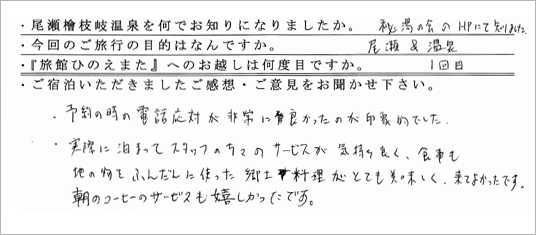 ・尾瀬檜枝岐温泉を何でお知りになりましたか。 秘湯の会のHPにて知りました。
・今回のご旅行の目的はなんですか。 尾瀬&温泉
・『旅館ひのえまた』へのお越しは何度目ですか。 1回目
・ご宿泊いただきましたご感想・ご意見をお聞かせ下さい。
・予約の時の電話応対が非常に良かったのが印象的でした。
・実際に泊まってスタッフの方々のサービスが気持ち良く、食事も
地の物をふんだんに使った郷土料理がとても美味しく、来てよかったです。
朝のコーヒーのサービスも嬉しかったです。